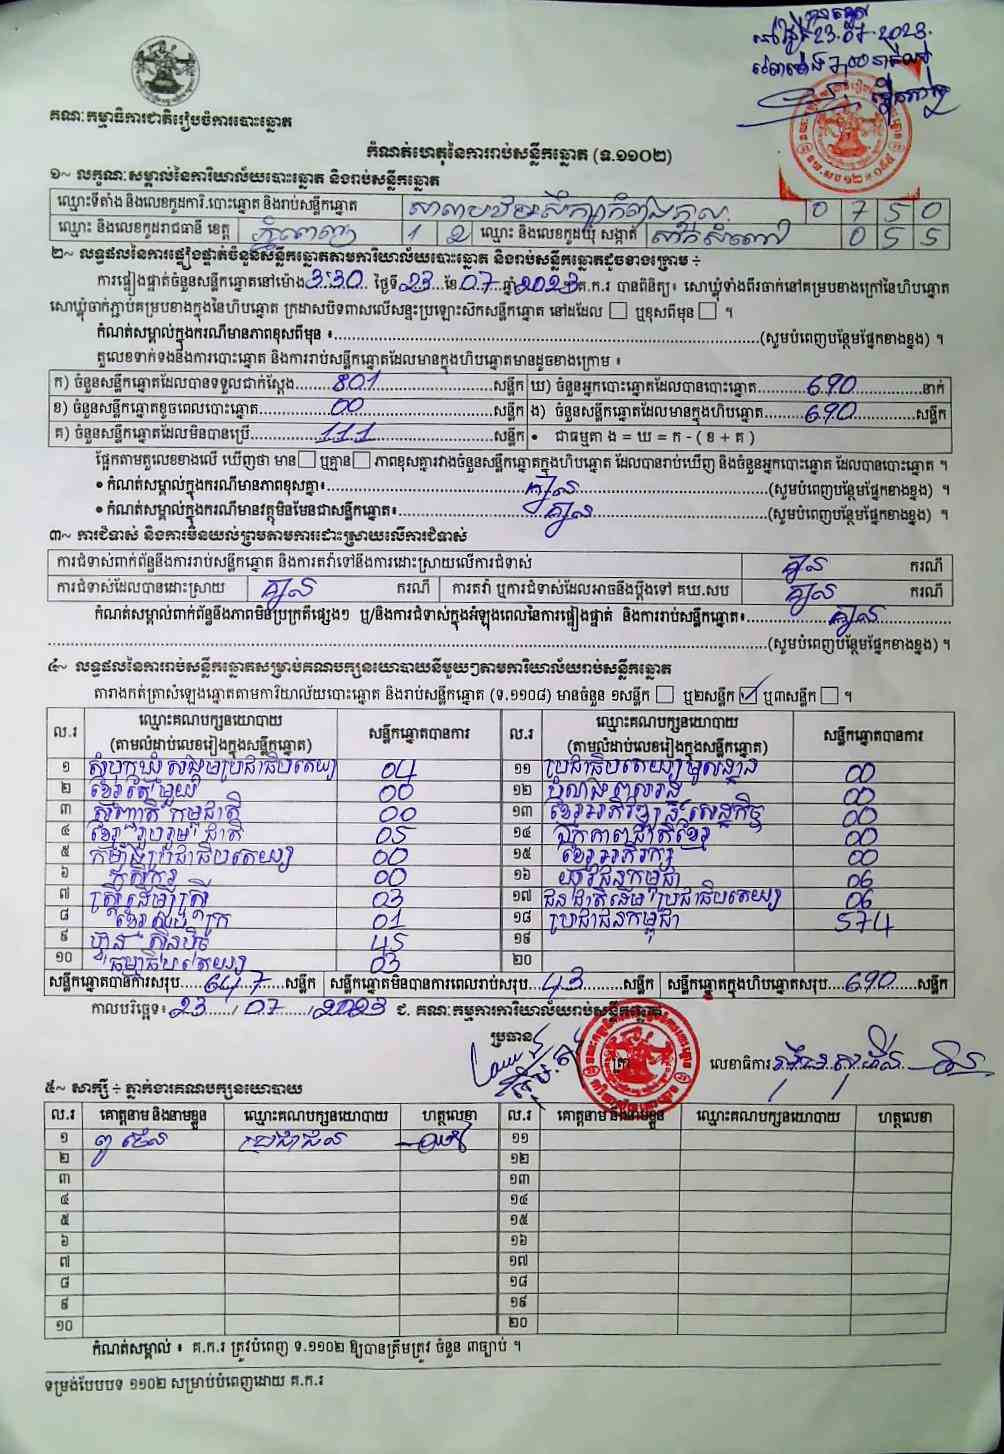 បានឃើញ
នៅថ្ងៃ 23.07.2023.
គណៈកម្មាធិការជាតិរៀបចំការបោះឆ្នោត
កំណត់ហេតុនៃការរាប់សន្លឹកឆ្នោត (ទ.១១០២)
១~ លក្ខណៈសម្គាល់នៃការិយាល័យបោះឆ្នោត និងរាប់សន្លឹកឆ្នោត
ឈ្មោះទីតាំង និងលេខកូដការិ.បោះឆ្នោត និងរាប់សន្លឹកឆ្នោត 0 7 5 0
ឈ្មោះ និងលេខកូដរាជធានី ខេត្ត ភ្នំពេញ 1 2 ឈ្មោះ និងលេខកូដឃុំ សង្កាត់ 0 5 5
២~ លទ្ធផលនៃការផ្ទៀងផ្ទាត់ចំនួនសន្លឹកឆ្នោតតាមការិយាល័យបោះឆ្នោត និងរាប់សន្លឹកឆ្នោតដូចខាងក្រោម ÷
ការផ្ទៀងផ្ទាត់ចំនួនសន្លឹកឆ្នោតនៅម៉ោង 3:30 ថ្ងៃទី 23 ខែ 07 ឆ្នាំ 2023 គ.ក.រ បានពិនិត្យ៖ សោឃ្លុំទាំងពីរចាក់នៅគម្របខាងក្រៅនៃហិបឆ្នោត
សោឃ្លុំចាក់ភ្ជាប់គម្របខាងក្នុងនៃហិបឆ្នោត ក្រដាសបិទពាសលើសន្ទះប្រឡោះស៊កសន្លឹកឆ្នោត នៅដដែល ☐ ឬខុសពីមុន ☐ ។
កំណត់សម្គាល់ក្នុងករណីមានភាពខុសពីមុន ៖ (សូមបំពេញបន្ថែមផ្នែកខាងខ្នង) ។
តួលេខទាក់ទងនឹងការបោះឆ្នោត និងការរាប់សន្លឹកឆ្នោតដែលមានក្នុងហិបឆ្នោតមានដូចខាងក្រោម ៖
ក) ចំនួនសន្លឹកឆ្នោតដែលបានទទួលជាក់ស្តែង 801 សន្លឹក ឃ) ចំនួនអ្នកបោះឆ្នោតដែលបានបោះឆ្នោត 690 នាក់
ខ) ចំនួនសន្លឹកឆ្នោតខូចពេលបោះឆ្នោត 00 សន្លឹក ង) ចំនួនសន្លឹកឆ្នោតដែលមានក្នុងហិបឆ្នោត 690 សន្លឹក
គ) ចំនួនសន្លឹកឆ្នោតដែលមិនបានប្រើ 111 សន្លឹក • ជាធម្មតា ង = ឃ = ក - ( ខ + គ )
ផ្អែកតាមតួលេខខាងលើ ឃើញថា មាន ☐ ឬគ្មាន ☐ ភាពខុសគ្នារវាងចំនួនសន្លឹកឆ្នោតក្នុងហិបឆ្នោត ដែលបានរាប់ឃើញ និងចំនួនអ្នកបោះឆ្នោត ដែលបានបោះឆ្នោត ។
• កំណត់សម្គាល់ក្នុងករណីមានភាពខុសគ្នា៖ គ្មាន (សូមបំពេញបន្ថែមផ្នែកខាងខ្នង) ។
• កំណត់សម្គាល់ក្នុងករណីមានវត្ថុមិនមែនជាសន្លឹកឆ្នោត៖ គ្មាន (សូមបំពេញបន្ថែមផ្នែកខាងខ្នង) ។
៣~ ការជំទាស់ និងការមិនយល់ព្រមតាមការដោះស្រាយលើការជំទាស់
ការជំទាស់ពាក់ព័ន្ធនឹងការរាប់សន្លឹកឆ្នោត និងការតវ៉ាទៅនឹងការដោះស្រាយលើការជំទាស់ គ្មាន ករណី
ការជំទាស់ដែលបានដោះស្រាយ គ្មាន ករណី ការតវ៉ា ឬការជំទាស់ដែលអាចនឹងប្តឹងទៅ គឃ.សប គ្មាន ករណី
កំណត់សម្គាល់ពាក់ព័ន្ធនឹងភាពមិនប្រក្រតីផ្សេងៗ ឬ/និងការជំទាស់ក្នុងអំឡុងពេលនៃការផ្ទៀងផ្ទាត់ និងការរាប់សន្លឹកឆ្នោត៖ គ្មាន
(សូមបំពេញបន្ថែមផ្នែកខាងខ្នង) ។
៤~ លទ្ធផលនៃការរាប់សន្លឹកឆ្នោតសម្រាប់គណបក្សនយោបាយនីមួយៗតាមការិយាល័យរាប់សន្លឹកឆ្នោត
តារាងកត់ត្រាសំឡេងឆ្នោតតាមការិយាល័យបោះឆ្នោត និងរាប់សន្លឹកឆ្នោត (ទ.១១០៨) មានចំនួន ១សន្លឹក ☐ ឬ២សន្លឹក ☑ ឬ៣សន្លឹក ☐ ។
ល.រ ឈ្មោះគណបក្សនយោបាយ (តាមលំដាប់លេខរៀងក្នុងសន្លឹកឆ្នោត) សន្លឹកឆ្នោតបានការ ល.រ ឈ្មោះគណបក្សនយោបាយ (តាមលំដាប់លេខរៀងក្នុងសន្លឹកឆ្នោត) សន្លឹកឆ្នោតបានការ
១ សំបុកឃ្មុំសង្គមប្រជាធិបតេយ្យ 04 ១១ ប្រជាធិបតេយ្យមូលដ្ឋាន 00
២ ខ្មែរតែមួយ 00 ១២ បំណងពលរដ្ឋ 00
៣ សញ្ជាតិកម្ពុជា 00 ១៣ ខ្មែរអភិវឌ្ឍន៍សេដ្ឋកិច្ច 00
៤ ខ្មែររួបរួមជាតិ 05 ១៤ ឯកភាពជាតិខ្មែរ 00
៥ កម្លាំងប្រជាធិបតេយ្យ 00 ១៥ ខ្មែរអភិរក្ស 00
៦ កសិករ 00 ១៦ យុវជនកម្ពុជា 06
៧ ស្ត្រីដើម្បីស្ត្រី 03 ១៧ ជនជាតិដើមប្រជាធិបតេយ្យ 06
៨ ខ្មែរឈប់ក្រ 01 ១៨ ប្រជាជនកម្ពុជា 574
៩ ហ៊្វុនស៊ិនប៉ិច 45 ១៩
១០ ធម្មាធិបតេយ្យ 03 ២០
សន្លឹកឆ្នោតបានការសរុប 647 សន្លឹក សន្លឹកឆ្នោតមិនបានការពេលរាប់សរុប 43 សន្លឹក សន្លឹកឆ្នោតក្នុងហិបឆ្នោតសរុប 690 សន្លឹក
កាលបរិច្ឆេទ៖ 23 / 07 / 2023 ជ. គណៈកម្មការការិយាល័យរាប់សន្លឹកឆ្នោត
ប្រធាន លេខាធិការ
៥~ សាក្សី ÷ ភ្នាក់ងារគណបក្សនយោបាយ
ល.រ គោត្តនាម និងនាមខ្លួន ឈ្មោះគណបក្សនយោបាយ ហត្ថលេខា ល.រ គោត្តនាម និងនាមខ្លួន ឈ្មោះគណបក្សនយោបាយ ហត្ថលេខា
១ ប្រជាជន ១១
២ ១២
៣ ១៣
៤ ១៤
៥ ១៥
៦ ១៦
៧ ១៧
៨ ១៨
៩ ១៩
១០ ២០
កំណត់សម្គាល់ ៖ គ.ក.រ ត្រូវបំពេញ ទ.១១០២ ឱ្យបានត្រឹមត្រូវ ចំនួន ៣ច្បាប់ ។
ទម្រង់បែបបទ ១១០២ សម្រាប់បំពេញដោយ គ.ក.រ